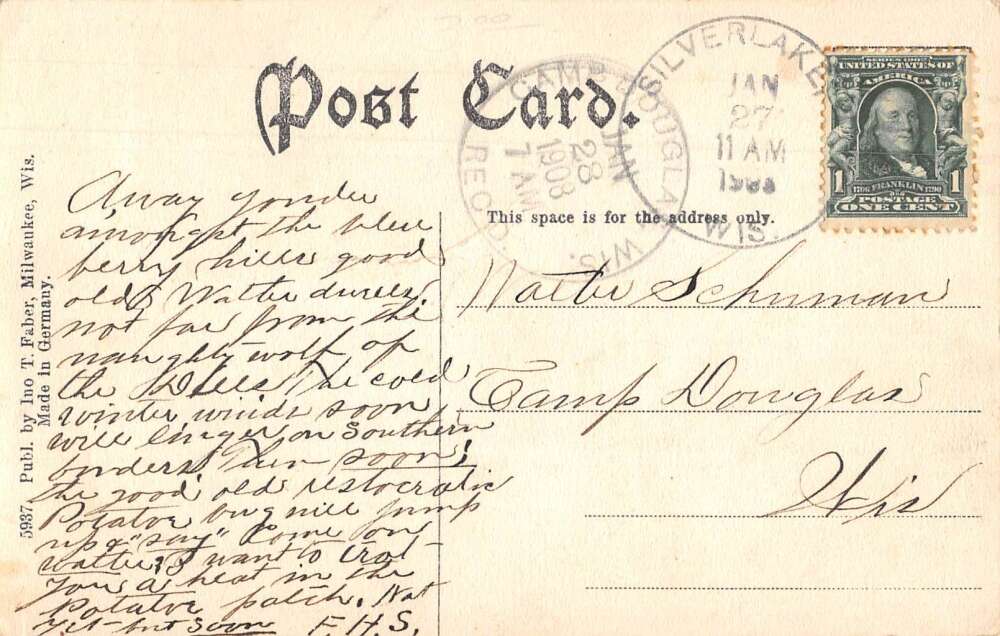 Post Card.
SILVERLAKE
JAN
27
11 AM
1908
WIS.
CAMP DOUGLAS WIS.
JAN
28
1908
7 AM
REC'D.
SERIES 1902
UNITED STATES OF
AMERICA
1 1
1706 FRANKLIN 1790
POSTAGE
ONE CENT
This space is for the address only.
5937, Publ. by Ino T. Faber, Milwaukee, Wis.
Made in Germany.
Away yonder
amongst the blue
berry hills good
old Walter dwells.
not far from the
naughty wolf of
the Dells, The cold
winter winds soon
will linger on Southern
borders. Then soon!
the good old restocratic
Potatoe bug will jump
up & "say" Come on
Walter I want to trot
you a heat in the
Potatoe patch. Not
yet but soon F.H.S.
Walter Schuman
Camp Douglas
Wis